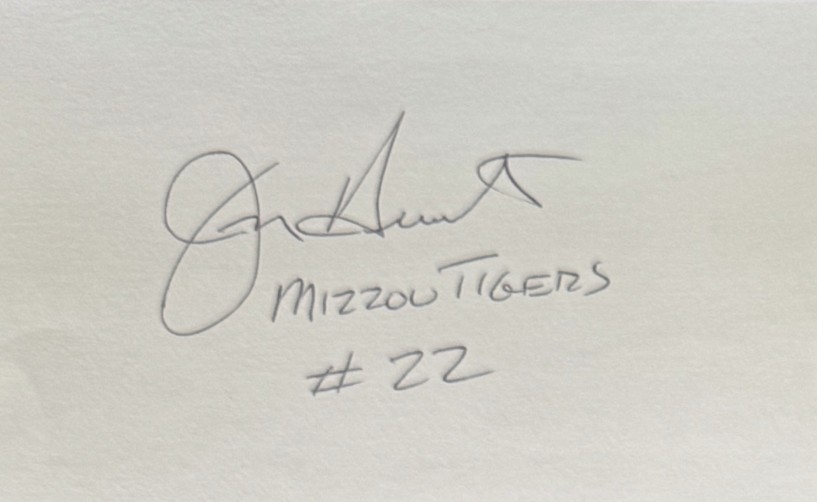 MIZZOU TIGERS
# 22